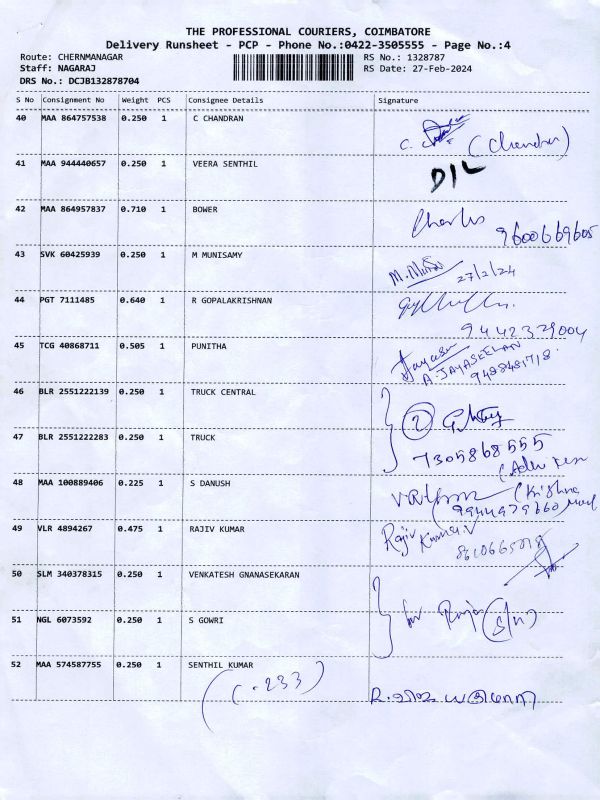 THE PROFESSIONAL COURIERS, COIMBATORE
Delivery Runsheet - PCP - Phone No.:0422-3505555 - Page No.:4
Route: CHERNMANAGAR
RS No.: 1328787
Staff: NAGARAJ
RS Date: 27-Feb-2024
DRS No.: DCJB132878704
S No Consignment No Weight PCS Consignee Details Signature
40 MAA 864757538 0.250 1 C CHANDRAN
C. (Chandran)
41 MAA 944440657 0.250 1 VEERA SENTHIL
D/L
42 MAA 864957837 0.710 1 BOWER
9600669605
43 SVK 60425939 0.250 1 M MUNISAMY
27/2/24
44 PGT 7111485 0.640 1 R GOPALAKRISHNAN
9442329004
45 TCG 40868711 0.505 1 PUNITHA
A. JAYASEELAN
9488481718
46 BLR 2551222139 0.250 1 TRUCK CENTRAL
2
47 BLR 2551222283 0.250 1 TRUCK
7305868555
48 MAA 100889406 0.225 1 S DANUSH
(Krishna
9944979660
49 VLR 4894267 0.475 1 RAJIV KUMAR
Rajiv
Kumar.V
50 SLM 340378315 0.250 1 VENKATESH GNANASEKARAN
51 NGL 6073592 0.250 1 S GOWRI
52 MAA 574587755 0.250 1 SENTHIL KUMAR
(.233)